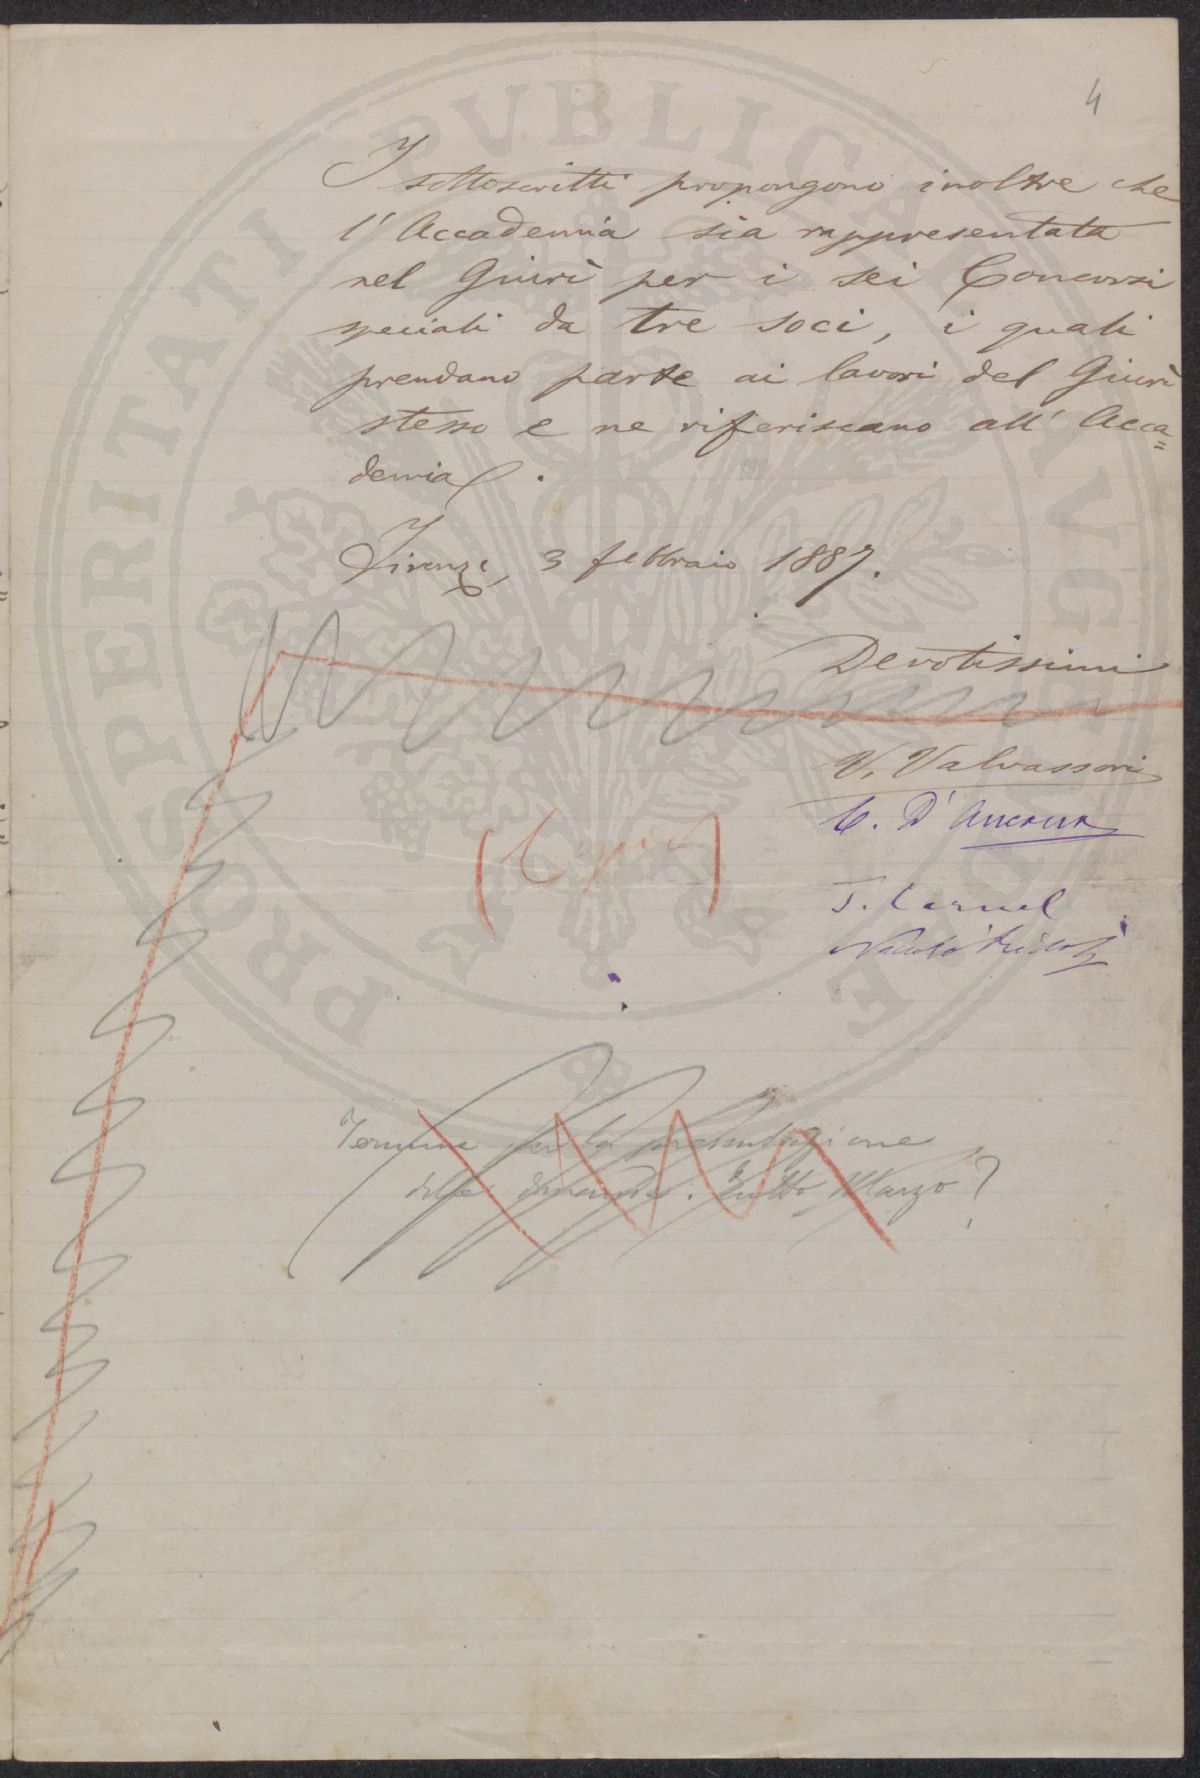 4
I sottoscritti propongono inoltre che
l'Accademia sia rappresentata
nel Giurì per i sei Concorsi
speciali da tre soci, i quali
prendano parte ai lavori del Giurì
stesso e ne riferiscano all'Acca=
demia.
Firenze, 3 febbraio 1887.
Devotissimi
V. Valvassori
C. D'Ancona
(Copia)
T. Caruel
Niccolò Ridolfi
Termine per la presentazione
delle domande: tutto Marzo?
PROSPERITATI PVBLICAE AVGENDAE